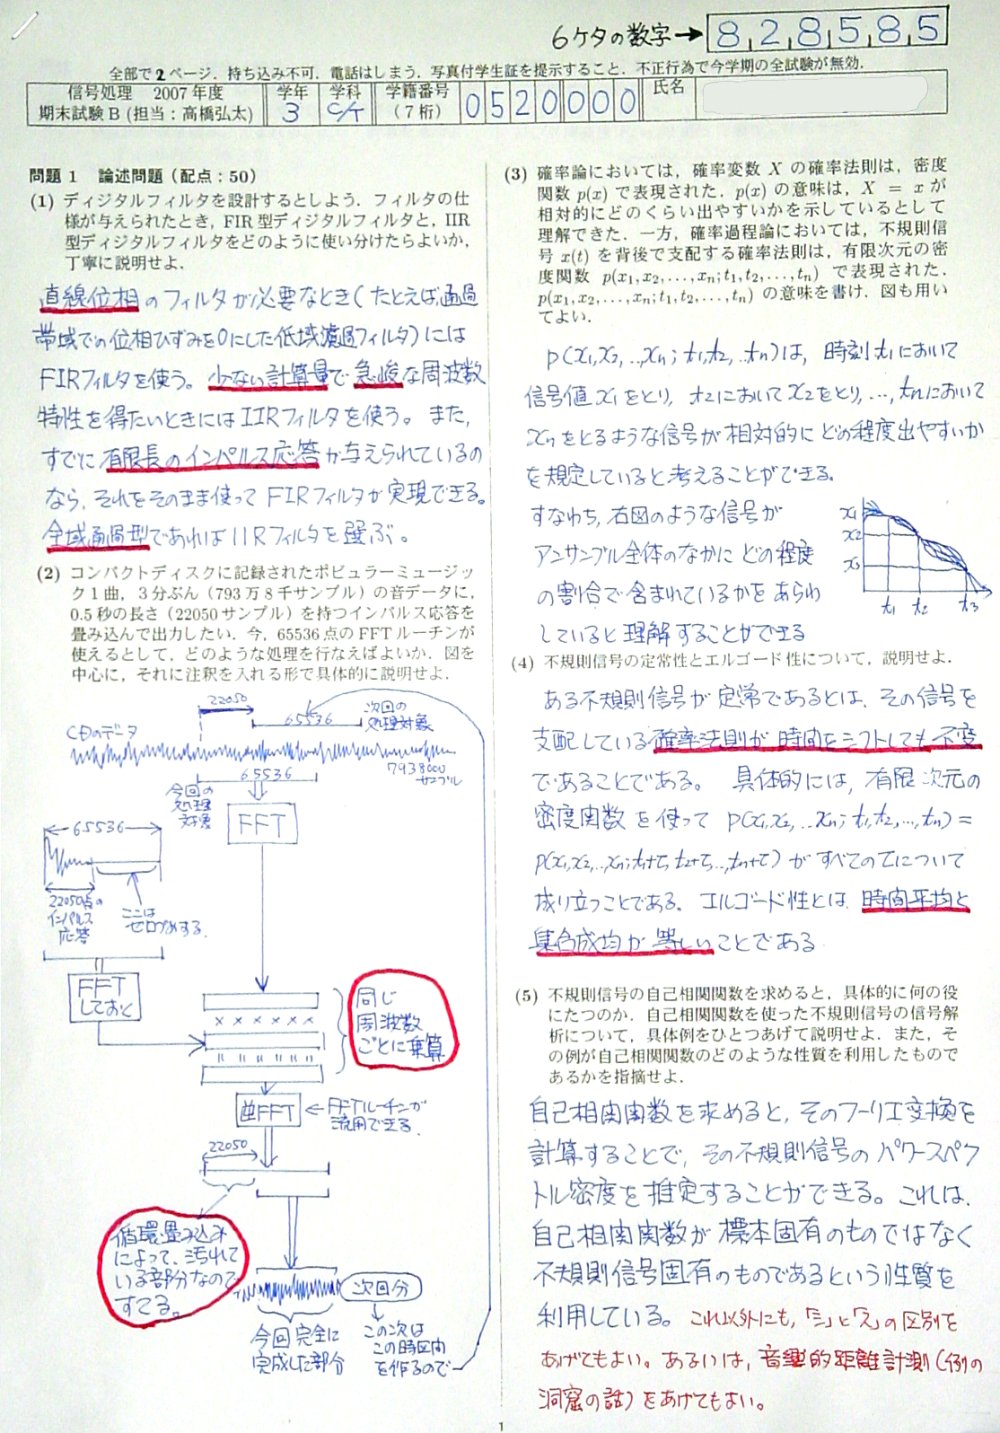 6ケタの数字→828585
全部で2ページ．持ち込み不可．電話はしまう．写真付学生証を提示すること．不正行為で今学期の全試験が無効．
信号処理 2007年度 学年 学科 学籍番号 氏名
期末試験B(担当：高橋弘太) 3 C/T (7桁) 0520000
問題1 論述問題(配点：50)
(1) ディジタルフィルタを設計するとしよう．フィルタの仕
様が与えられたとき，FIR型ディジタルフィルタと，IIR
型ディジタルフィルタをどのように使い分けたらよいか，
丁寧に説明せよ．
直線位相のフィルタが必要なとき(たとえば，通過
帯域での位相ひずみを0にした低域濾過フィルタ)には
FIRフィルタを使う。少ない計算量で急峻な周波数
特性を得たいときにはIIRフィルタを使う。また，
すでに有限長のインパルス応答が与えられているの
なら，それをそのまま使ってFIRフィルタが実現できる。
全域通過型であればIIRフィルタを選ぶ。
(2) コンパクトディスクに記録されたポピュラーミュージッ
ク1曲，3分ぶん(793万8千サンプル)の音データに，
0.5秒の長さ(22050サンプル)を持つインパルス応答を
畳み込んで出力したい．今，65536点のFFTルーチンが
使えるとして，どのような処理を行なえばよいか．図を
中心に，それに注釈を入れる形で具体的に説明せよ．
22050
65536
次回の
処理対象
CDのデータ
7938000
サンプル
65536
今回の
処理
対象
FFT
65536
22050点の
インパルス
応答
ここは
ゼロづめする．
FFT
しておく
同じ
周波数
ごとに乗算
逆FFT
←FFTルーチンが
流用できる．
22050
循環畳み込み
によって，汚れて
いる部分なので
すてる。
次回分
今回完全に
完成した部分
この次は
この時区間
を作るので
(3) 確率論においては，確率変数 X の確率法則は，密度
関数 p(x) で表現された．p(x) の意味は，X = x が
相対的にどのくらい出やすいかを示しているとして
理解できた．一方，確率過程論においては，不規則信
号 x(t) を背後で支配する確率法則は，有限次元の密
度関数 p(x1,x2,...,xn;t1,t2,...,tn) で表現された．
p(x1,x2,...,xn;t1,t2,...,tn) の意味を書け．図も用い
てよい．
p(x1,x2,..xn; t1,t2,..tn)は，時刻t1において
信号値x1をとり，t2においてx2をとり，…，tnにおいて
xnをとるような信号が相対的にどの程度出やすいか
を規定していると考えることができる．
すなわち，右図のような信号が
アンサンブル全体のなかにどの程度
の割合で含まれているかをあらわ
していると理解することができる
x1
x2
x3
t1 t2 t3
(4) 不規則信号の定常性とエルゴード性について，説明せよ．
ある不規則信号が定常であるとは，その信号を
支配している確率法則が時間をシフトしても不変
であることである。具体的には，有限次元の
密度関数を使って p(x1,x2,..xn; t1,t2,…,tn)=
p(x1,x2,..xn;t1+τ,t2+τ,..,tn+τ) がすべてのτについて
成り立つことである．エルゴード性とは，時間平均と
集合平均が等しいことである
(5) 不規則信号の自己相関関数を求めると，具体的に何の役
にたつのか．自己相関関数を使った不規則信号の信号解
析について，具体例をひとつあげて説明せよ．また，そ
の例が自己相関関数のどのような性質を利用したもので
あるかを指摘せよ．
自己相関関数を求めると，そのフーリエ変換を
計算することで，その不規則信号のパワースペク
トル密度を推定することができる。これは，
自己相関関数が標本固有のものではなく
不規則信号固有のものであるという性質を
利用している。これ以外にも，「ミ」と「え」の区別を
あげてもよい。あるいは，音響的距離計測(例の
洞窟の話)をあげてもよい。
1